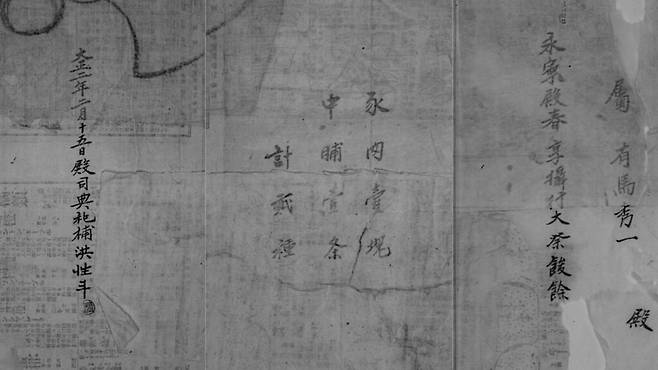 屬 有馬秀一 殿
永寧殿春享攝行大祭餕餘
豕肉壹塊
中脯壹条
計貳種
大正二年二月十五日 殿司典祀補 洪性斗